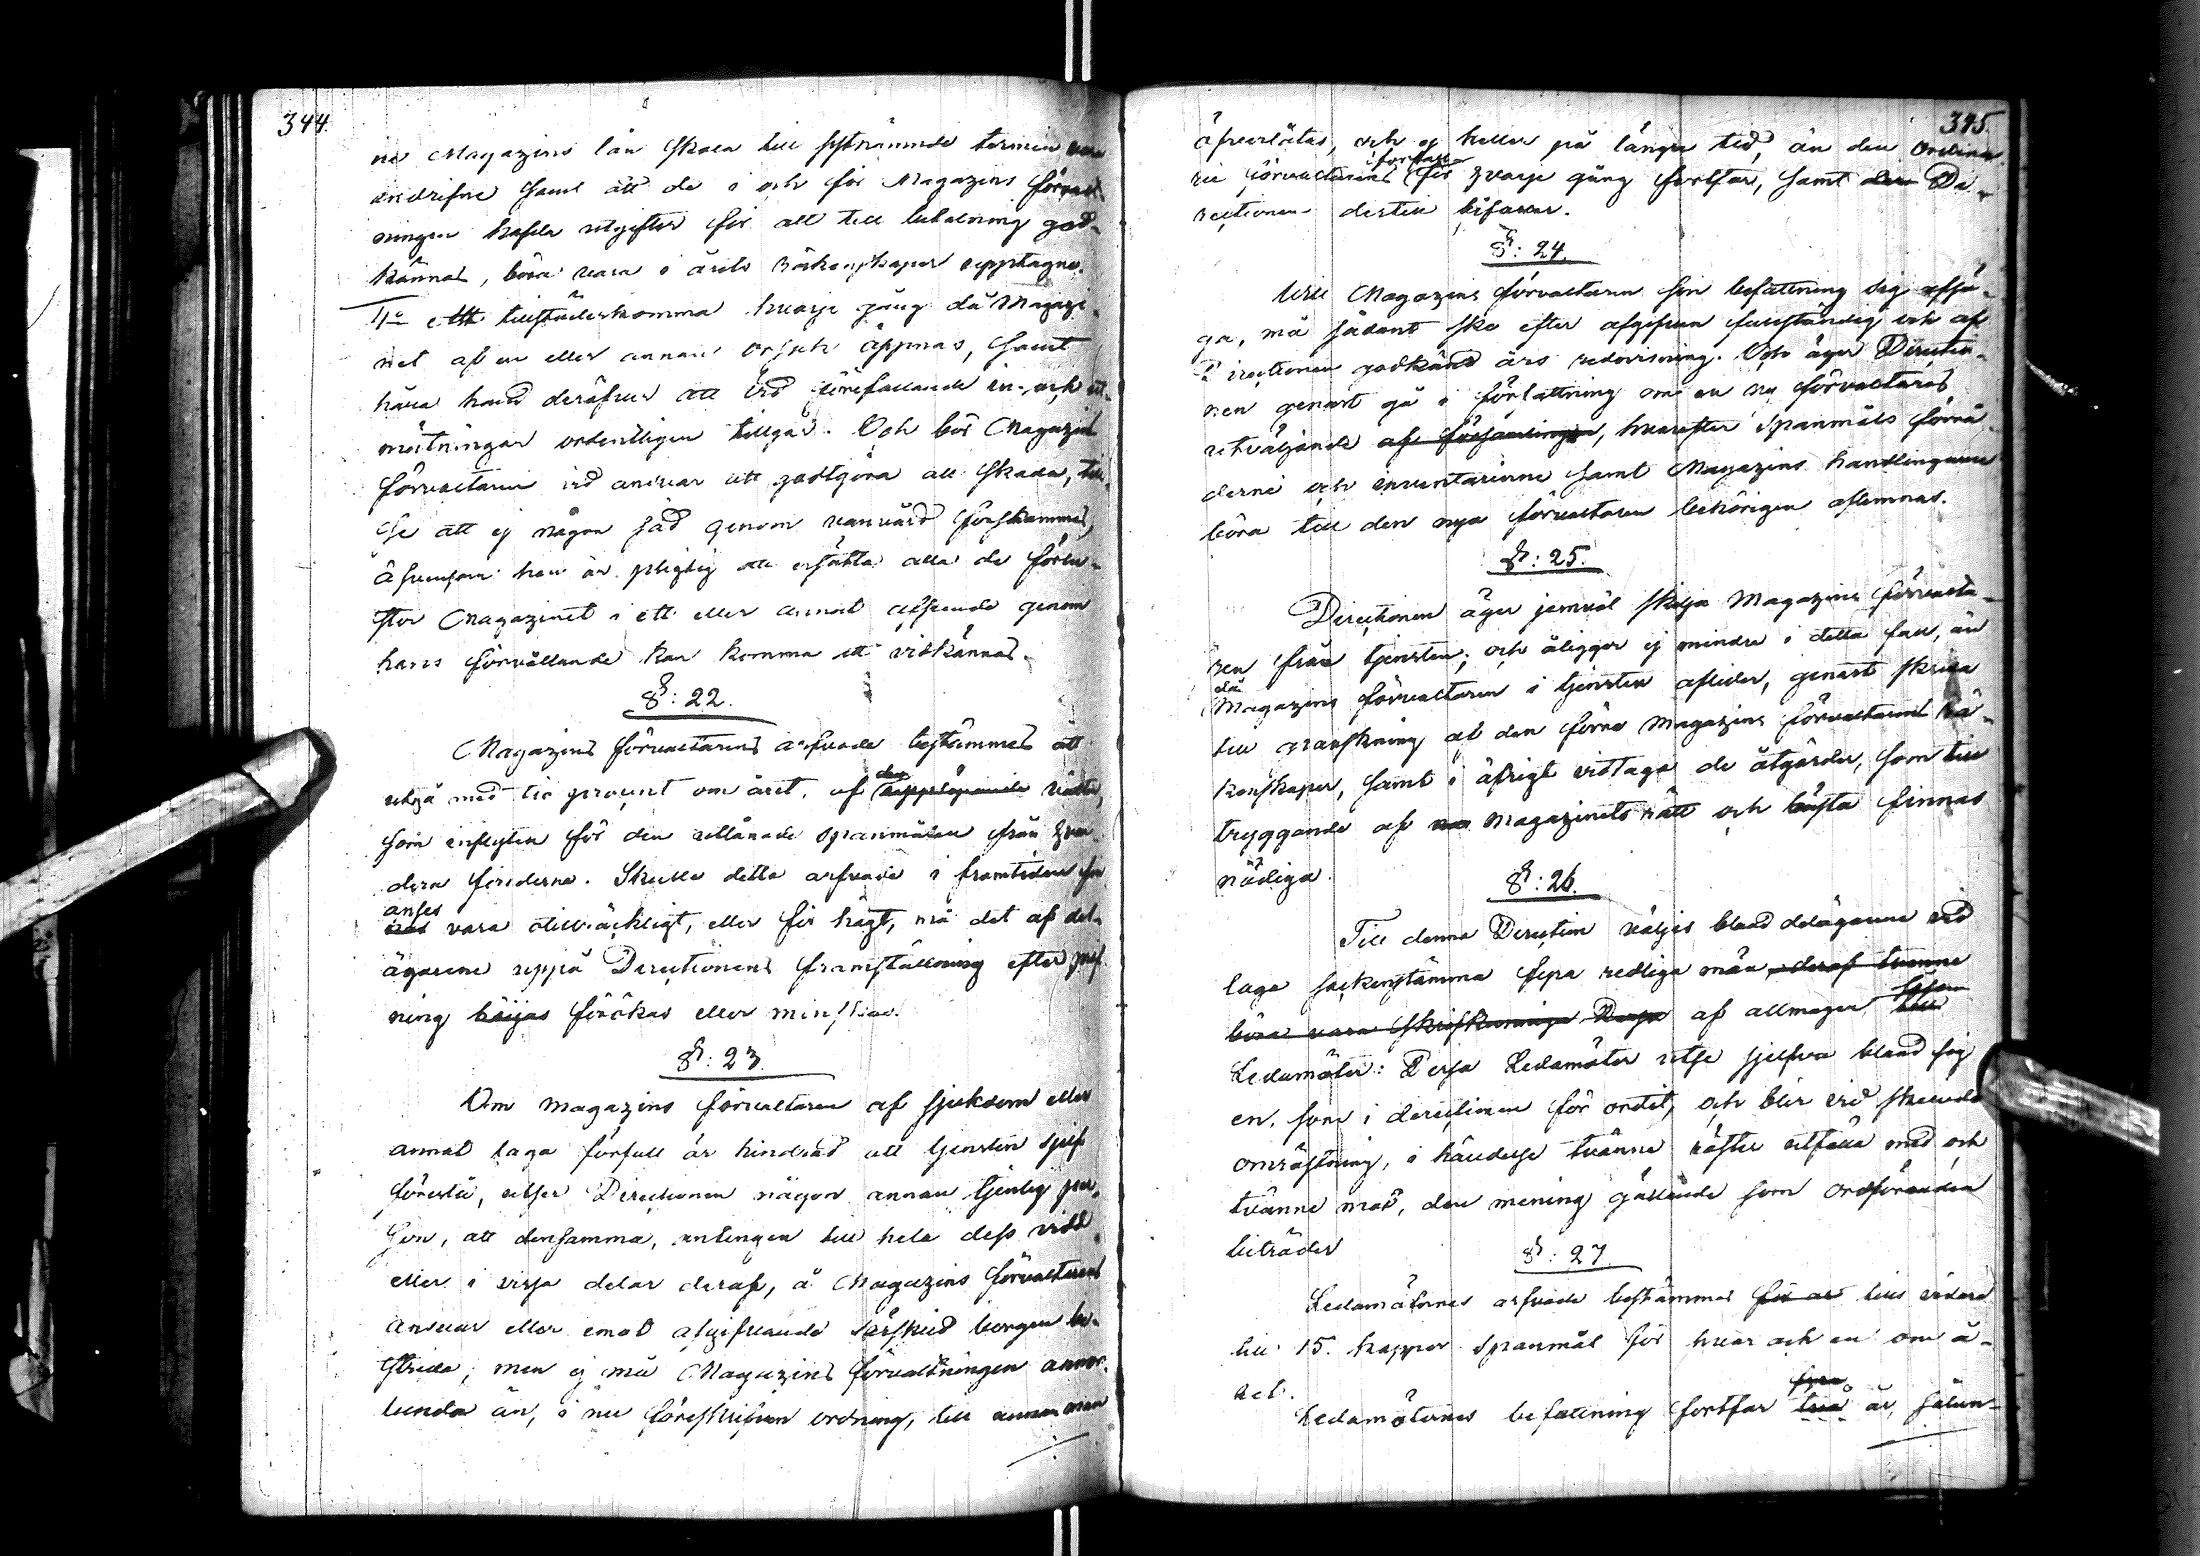 344.
ne Magazins lån skola till sistnämnde termin vara
indrifne samt att de i och för Magazins förvalt-
ningen hafda utgifter för att till betalning god-
kännas, böra vara i årets Räkenskaper upptagne.
11o att tillstädeskomma hvarje gång då Magazi-
net af en eller annan orsak öppnas, samt
hafva hand deröfver att vid förefallande in- och ut-
mätningar ordentligen tillgår. Och bör Magazins
förvaltaren vid ansvar att godtgöra all skada, till-
se att ej någon säd genom vanvård förskämmes,
äfvensom han är pligtig att ersätta alla de förlu-
ster Magazinet i ett eller annat afseende genom
hans förvållande kan komma att vidkännas.
§: 22.
Magazins förvaltarens arfvode bestämmes att
utgå med tio procent om året, af den upplöpande ränta,
som inflyter för den utlånade spanmålen från
dera
anses vara otillräckligt, eller för högt, må det af del-
ägarne uppå Directionens framställning efter pröf-
ning höijas förökas eller minskas.
§: 23.
Om Magazins förvaltaren af sjukdom eller
annat laga förfall är hindrad att tjensten sjelf
förestå, utser Directionen någon annan tjenlig per-
son, att densamma, antingen till hela dess vidd
eller i vissa delar deraf, å Magazins förvaltarens
ansvar eller emot afgifvande särskild borgen be-
strida; men ej må Magazins förvaltningen annor-
lunda än, i nu föreskrifven ordning, till annan man
345.
öfverlåtas, och ej heller på längre tid, än den ordina-
rie förvaltarens förfall för hvarje gång fortfar, samt den Di-
rectionen dertill bifaller.
§: 24.
Vill Magazins förvaltaren sin befattning sig afsä-
ga, må sådant ske efter afgifven fullständig och af
Directionen godkänd års redovisning. Och äger Directio-
nen genast gå i författning om en ny förvaltares
utväljande af församlingen, hvarefter Spanmåls förrå-
derne och inventarierne samt Magazins handlingarne
böra till den nya förvaltaren behörigen aflemnas.
§: 25.
Directionen äger jemväl skilja Magazins förvalta-
ren från tjensten; och åligger ej mindre i detta fall, än
då
Magazins förvaltaren i tjensten aflider, genast skrida
till granskning af den förre Magazins förvaltarens Rä-
kenskaper, samt i öfrigt vidtaga de åtgärder, som till
tryggande af Magazinets rätt och bästa finnas
nödiga.
§: 26.
Till denna Direction väljes bland delägarne vid
laga sockenstämma fyra redliga män, deraf tvenne
böra vara skrifkunnige Desse af allmoger såsom till
Ledamöter: Dessa Ledamöter utse sjelfva bland sig
en, som i directionen för ordet, och blir vid skeende
omröstning, i händelse tvänne röster utfalla med och
tvänne mot, den mening gällande som ordföranden
biträder
§: 27.
Ledamöternes arfvode bestämmes för år tills vidare
till 15. kappar Spanmål för hvar och en om å-
ret.
fyra
Ledamöternes befattning fortfar tvia år, sålun-